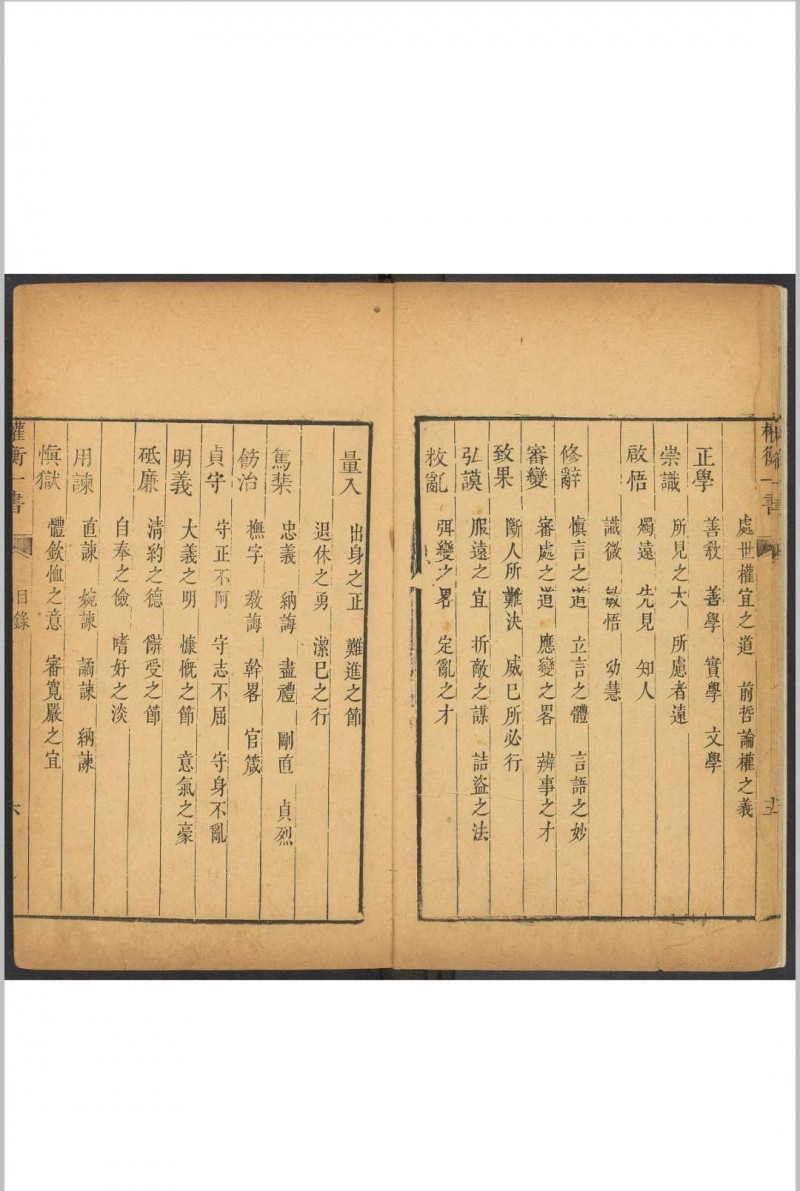 處世權宜之道 前哲論權之義
正學 善敎 善學 實學 文學
崇識 所見之大 所慮者遠
啟悟 燭遠 先見 知人
識微 敏悟 幼慧
修辭 愼言之道 立言之體 言語之妙
審變 審處之道 應變之畧 辨事之才
致果 斷人所難決 威巳所必行
弘謨 服遠之宜 折敵之謀 詰盜之法
救亂 弭變之畧 定亂之才
量入 出身之正 難進之節
退休之勇 潔巳之行
篤棐 忠義 納誨 盡禮 剛直 貞烈
飭治 撫字 敎誨 幹畧 官箴
貞守 守正不阿 守志不屈 守身不亂
明義 大義之明 慷慨之節 意氣之豪
砥廉 淸約之德 辭受之節
自奉之儉 嗜好之淡
用諫 直諫 婉諫 譎諫 納諫
愼獄 體欽恤之意 審寬嚴之宜
權衡一書 目錄 六